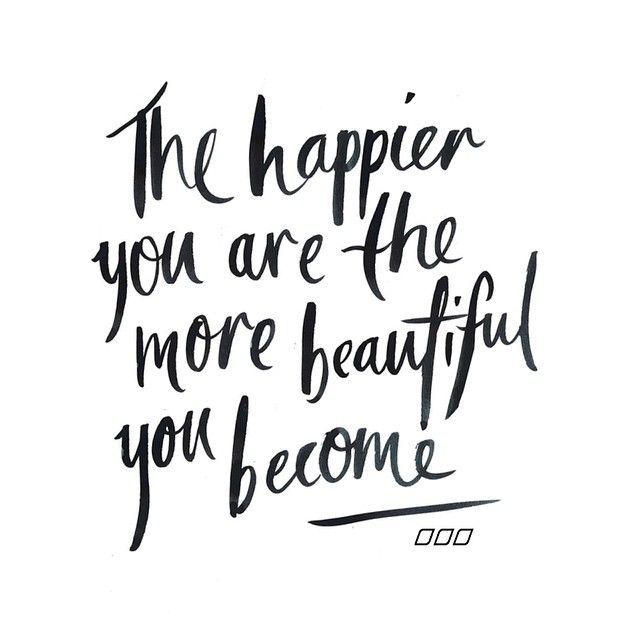 The happier
you are the
more beautiful
you become